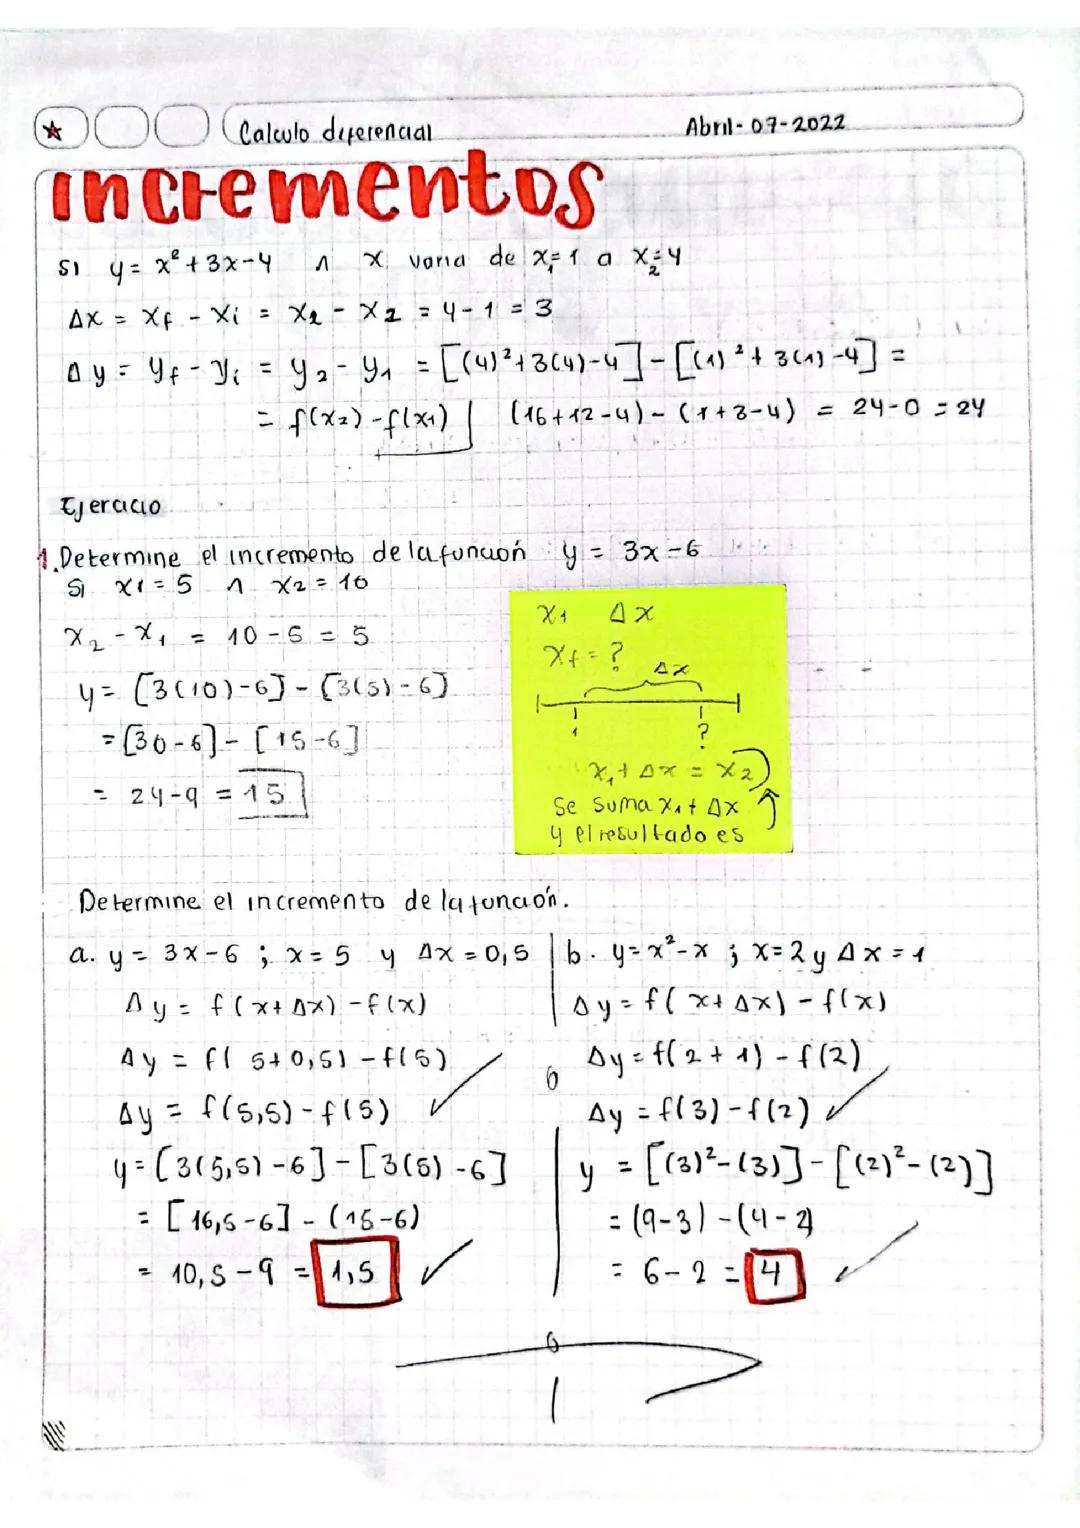 Calculo diferencial
Abril-07-2022
Incrementos
Si y = x² + 3x - 4 ∧ x varia de x₁= 1 a x₂= 4
Δx = xf - xi = x₂ - x₂ = 4 - 1 = 3
Δy = yf - yi = y₂ - y₁ = [(4)² + 3(4) - 4] - [(1)² + 3(1) - 4] =
= f(x₂) - f(x₁) | (16 + 12 - 4) - (1 + 3 - 4) = 24 - 0 = 24
Ejercicio
1. Determine el incremento de la función y = 3x - 6
Si x₁ = 5 ∧ x₂ = 10
x₂ - x₁ = 10 - 5 = 5
y = [3(10) - 6] - [3(5) - 6]
= [30 - 6] - [15 - 6]
= 24 - 9 = 15
x₁ Δx
xf = ?
Δx
1 ?
x₁ + Δx = x₂
Se suma x₁ + Δx
y el resultado es
Determine el incremento de la función.
a. y = 3x - 6 ; x = 5 y Δx = 0,5
Δy = f(x + Δx) - f(x)
Δy = f(5 + 0,5) - f(5)
Δy = f(5,5) - f(5)
y = [3(5,5) - 6] - [3(5) - 6]
= [16,5 - 6] - (15 - 6)
= 10,5 - 9 = 1,5
b. y = x² - x ; x = 2 y Δx = 1
Δy = f(x + Δx) - f(x)
Δy = f(2 + 1) - f(2)
Δy = f(3) - f(2)
y = [(3)² - (3)] - [(2)² - (2)]
= (9 - 3) - (4 - 2)
= 6 - 2 = 4